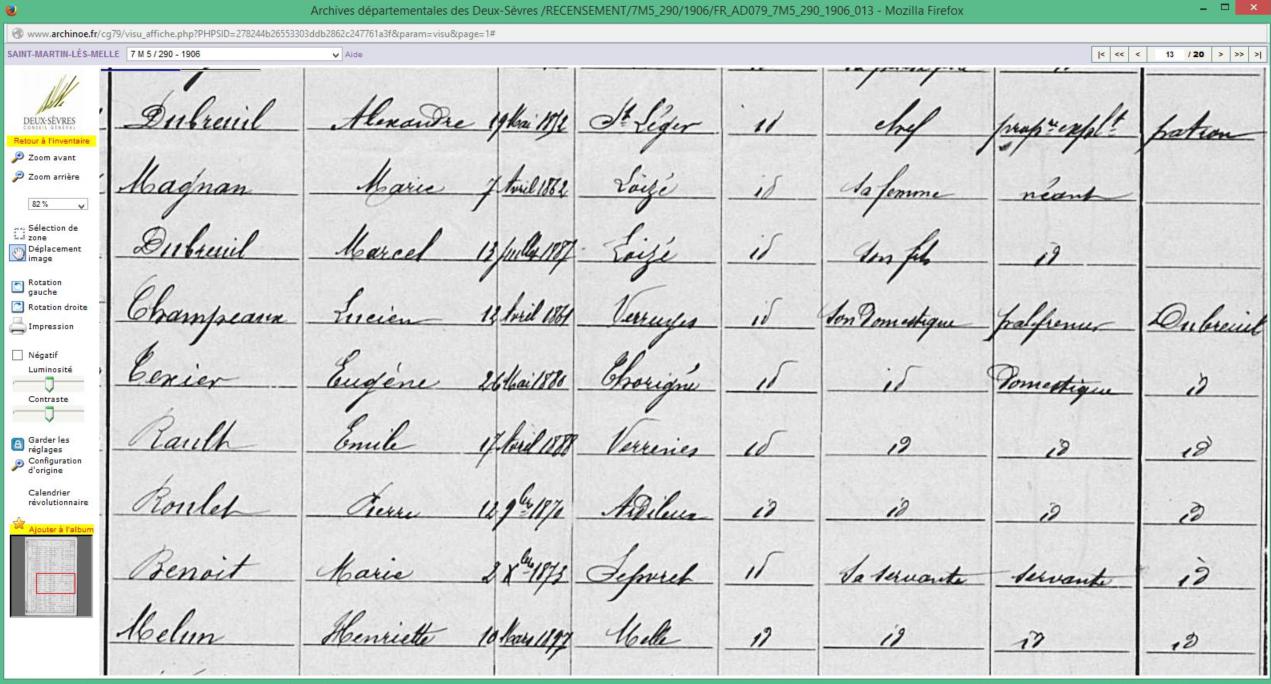 Archives départementales des Deux-Sèvres /RECENSEMENT/7M5_290/1906/FR_AD079_7M5_290_1906_013 - Mozilla Firefox
www.archinoe.fr/cg79/visu_affiche.php?PHPSID=278244b26553303ddb2862c247761a3f&param=visu&page=1#
SAINT-MARTIN-LÈS-MELLE 7 M 5 / 290 - 1906 Aide |< << < 13 / 20 > >> >|
DEUX-SÈVRES
CONSEIL GÉNÉRAL
Retour à l'inventaire
Zoom avant
Zoom arrière
82 %
Sélection de
zone
Déplacement
image
Rotation
gauche
Rotation droite
Impression
Négatif
Luminosité
Contraste
Garder les
réglages
Configuration
d'origine
Calendrier
révolutionnaire
Ajouter à l'album
Dubreuil Alexandre 19 Mai 1872 St Léger id chef propre explt patron
Magnan Marie 7 Avril 1862 Loizé id sa femme néant
Dubreuil Marcel 13 Juillet 1887 Loizé id son fils id
Champeaux Lucien 13 Avril 1861 Verruyes id son Domestique palfrenier Dubreuil
Texier Eugène 26 Mai 1880 Thorigné id id Domestique id
Rault Emile 17 Avril 1888 Verrines id id id id
Roulet Pierre 12 9bre 1870 Ardilleux id id id id
Benoit Marie 2 Xbre 1873 Sepvret id sa servante servante id
Melun Henriette 10 Mars 1897 Melle id id id id